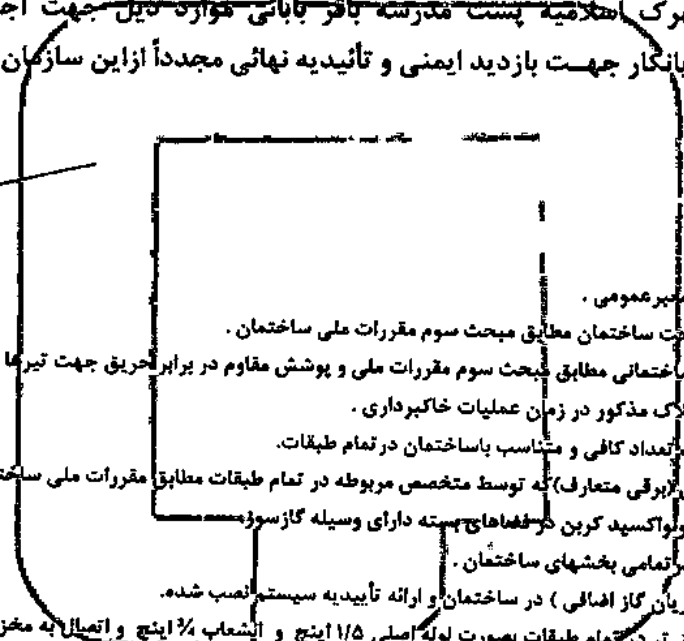 شهرک اسلامیه پشت مدرسه باقر بابائی موارد ذیل جهت
جهت بازدید ایمنی و تأئیدیه نهائی مجدداً ازاین سازمان
معبر عمومی .
ساختمان مطابق مبحث سوم مقررات ملی ساختمان .
ساختمانی مطابق مبحث سوم مقررات ملی و پوشش مقاوم در برابر حریق جهت تیرها
پلاک مذکور در زمان عملیات خاکبرداری .
تعداد کافی و متناسب باساختمان در تمام طبقات.
(برقی متعارف) که توسط متخصص مربوطه در تمام طبقات مطابق مقررات ملی
مونواکسید کربن در فضاهای بسته دارای وسیله گازسوز.
تمامی بخشهای ساختمان .
جریان گاز اضافی ) در ساختمان و ارائه تأییدیه سیستم نصب شده.
در تمام طبقات بصورت لوله اصلی ۱/۵ اینچ و انشعاب ¾ اینچ و اتصال به